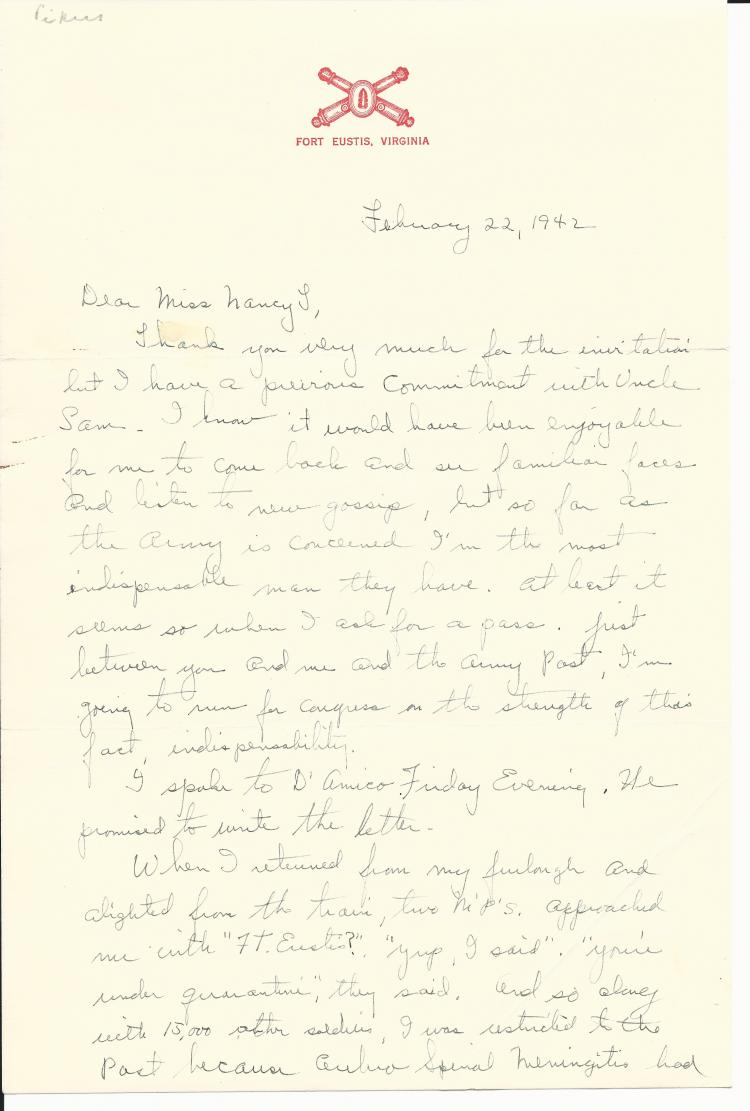 Pikus
FORT EUSTIS, VIRGINIA
February 22, 1942
Dear Miss Nancy T,
Thank you very much for the invitation
but I have a previous commitment with Uncle
Sam. I know it would have been enjoyable
for me to come back and see familiar faces
and listen to new gossip, but so far as
the Army is concerned I'm the most
indispensable man they have. At least it
seems so when I ask for a pass. Just
between you and me and the Army Post, I'm
going to run for Congress on the strength of this
fact, indispensability.
I spoke to D'Amico Friday Evening. He
promised to write the letter.
When I returned from my furlough and
alighted from the train, two M.P.'s. approached
me with "Ft. Eustis?". "Yup, I said". "You're
under quarantine", they said. And so along
with 15,000 other soldiers, I was restricted to the
Post because Cerebro Spinal Meningitis had